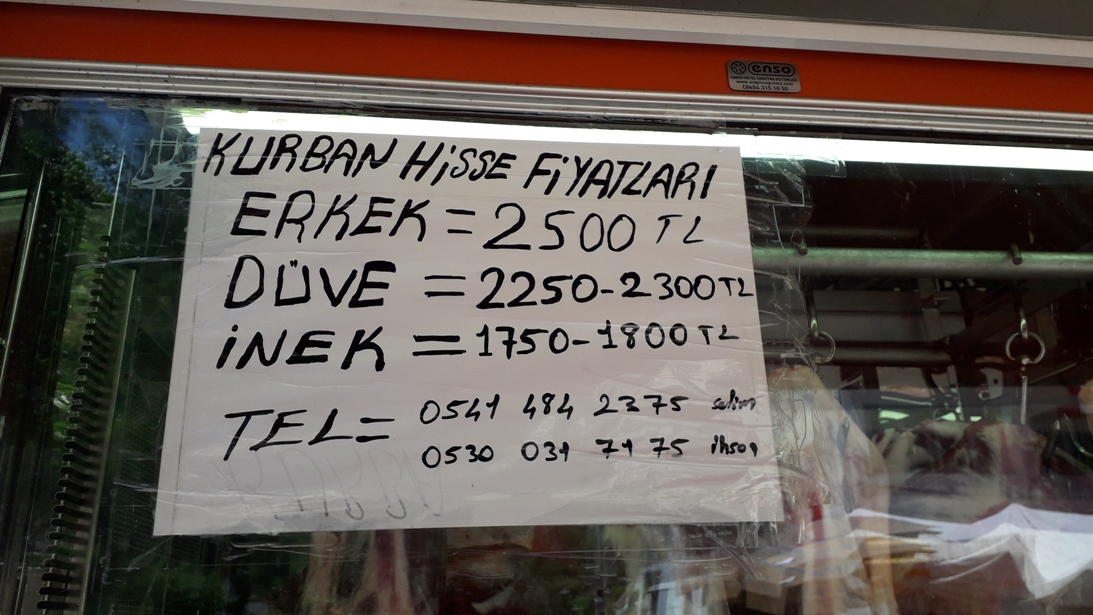 enso
ENDÜSTRİYEL SOĞUTMA SİSTEMLERİ
0454 315 10 50
KURBAN HİSSE FİYATLARI
ERKEK = 2500 TL
DÜVE = 2250-2300 TL
İNEK = 1750-1800 TL
TEL = 0541 484 2375 selim
0530 031 71 75 ihsan